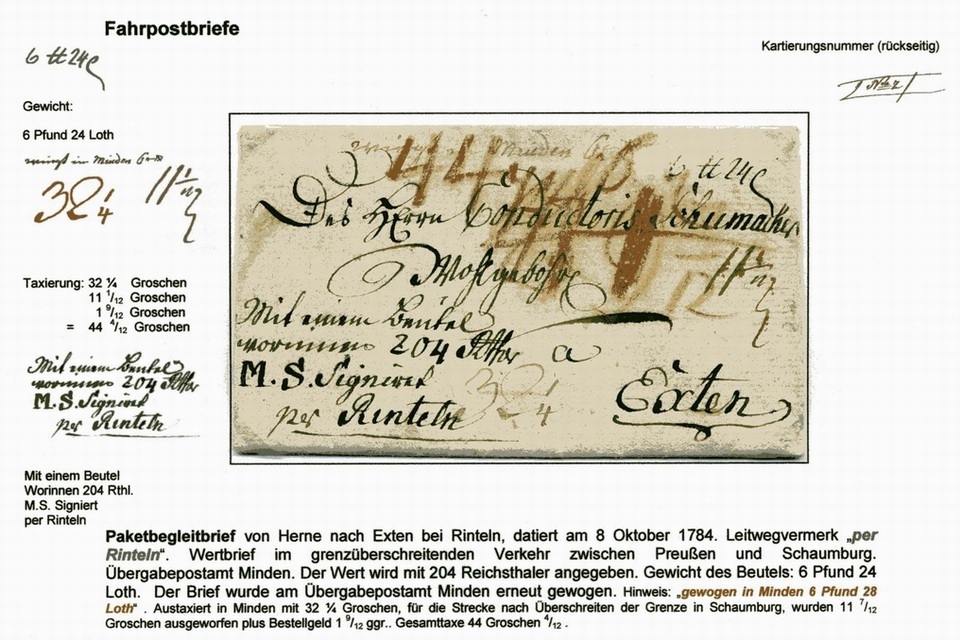 Fahrpostbriefe
Kartierungsnummer (rückseitig)
6 tt 24
Gewicht:
6 Pfund 24 Loth
wiegt in Minden
32 1/4
Taxierung: 32 ¼ Groschen
11 1/12 Groschen
1 9/12 Groschen
= 44 4/12 Groschen
Mit einem Beutel
worinnen 204 Rthlr
M.S. Signiret
per Rinteln
Mit einem Beutel
Worinnen 204 Rthl.
M.S. Signiert
per Rinteln
wiegt in Minden
6 tt 24
44
Des Herrn Conductoris Schumacher
Wohlgebohr
Mit einem Beutel
worinnen 204 Rthlr
a
M.S. Signiret
32 1/4
per Rinteln
Exten
Paketbegleitbrief von Herne nach Exten bei Rinteln, datiert am 8 Oktober 1784. Leitwegvermerk „per
Rinteln“. Wertbrief im grenzüberschreitenden Verkehr zwischen Preußen und Schaumburg.
Übergabepostamt Minden. Der Wert wird mit 204 Reichsthaler angegeben. Gewicht des Beutels: 6 Pfund 24
Loth. Der Brief wurde am Übergabepostamt Minden erneut gewogen. Hinweis: „gewogen in Minden 6 Pfund 28
Loth“ . Austaxiert in Minden mit 32 ¼ Groschen, für die Strecke nach Überschreiten der Grenze in Schaumburg, wurden 11 7/12
Groschen ausgeworfen plus Bestellgeld 1 9/12 ggr.. Gesamttaxe 44 Groschen 4/12 .